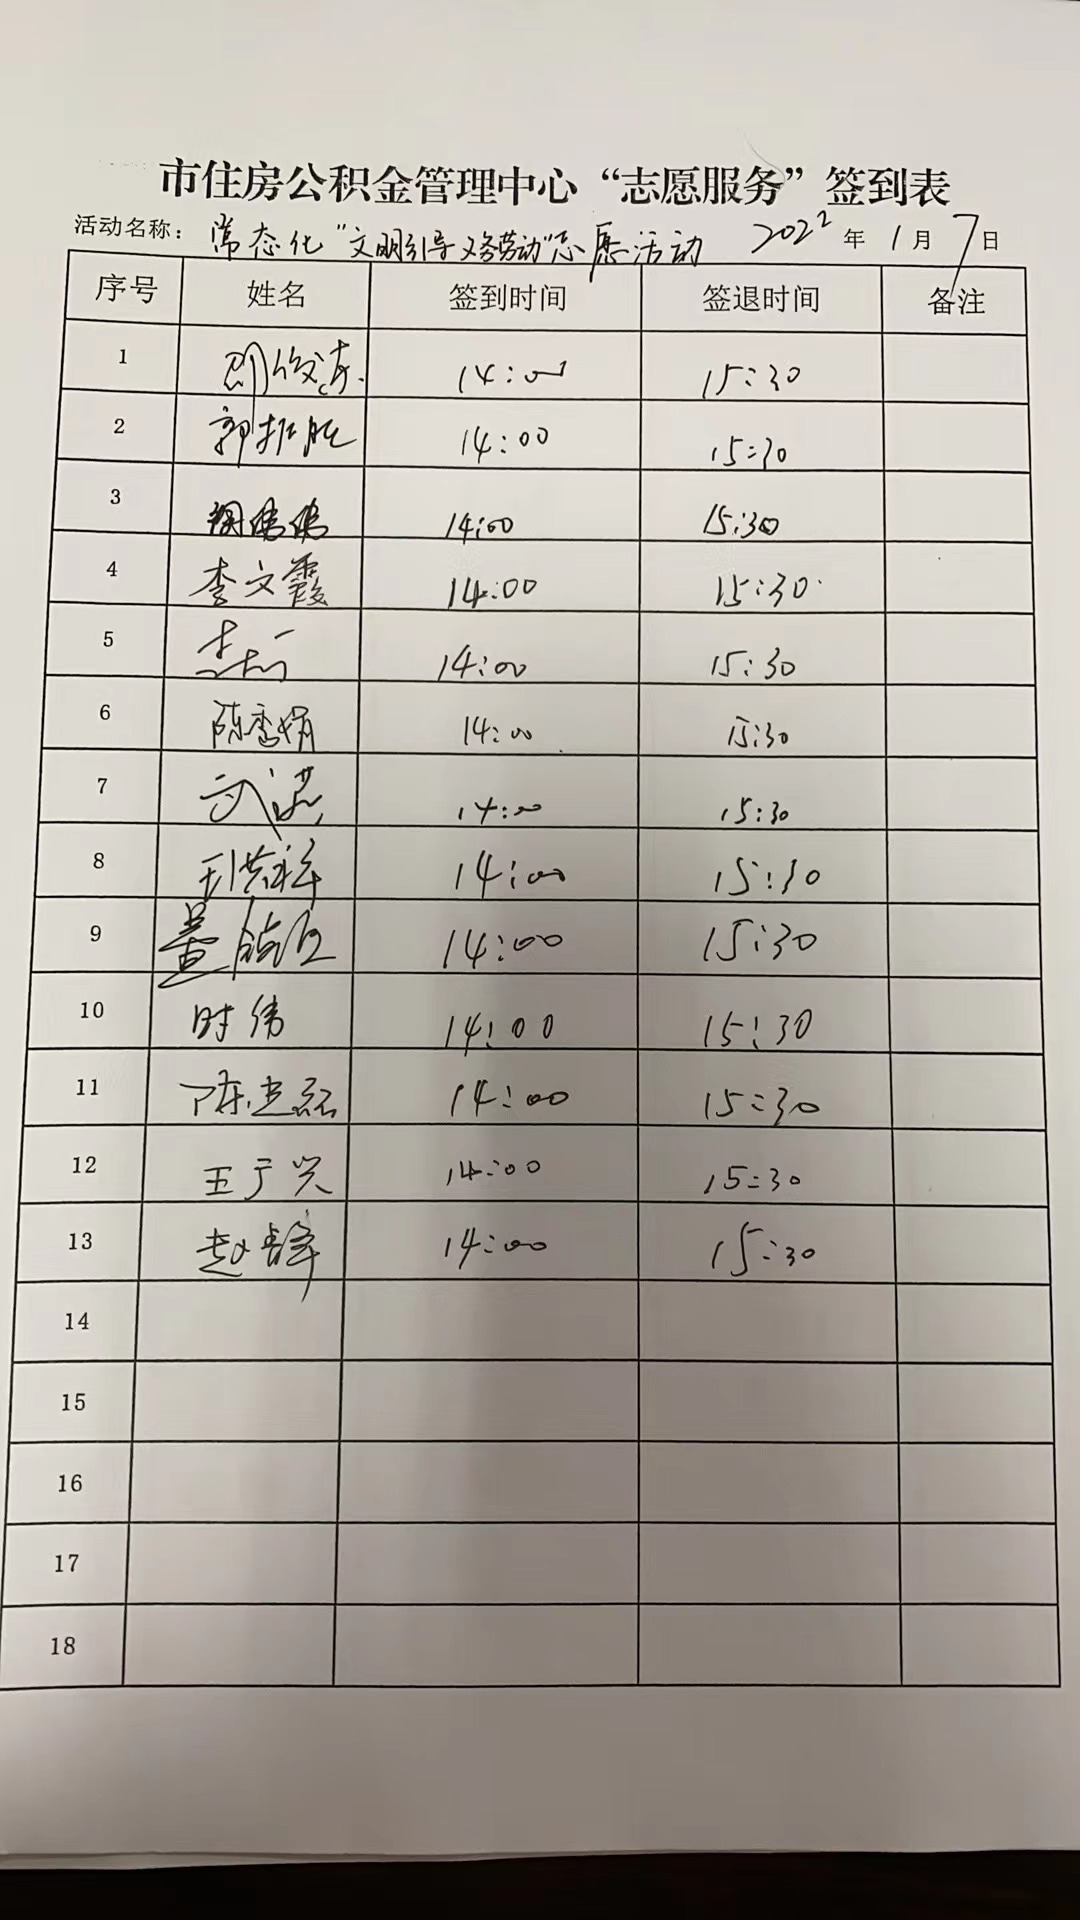 市住房公积金管理中心“志愿服务”签到表
活动名称：常态化“文明引导义务劳动”志愿活动 2022年1月7日
序号 姓名 签到时间 签退时间 备注
1 14:00 15:30
2 郭振胜 14:00 15:30
3 14:00 15:30
4 李文霞 14:00 15:30
5 14:00 15:30
6 陈香娟 14:00 15:30
7 14:00 15:30
8 14:00 15:30
9 14:00 15:30
10 时伟 14:00 15:30
11 14:00 15:30
12 王广兴 14:00 15:30
13 14:00 15:30
14
15
16
17
18